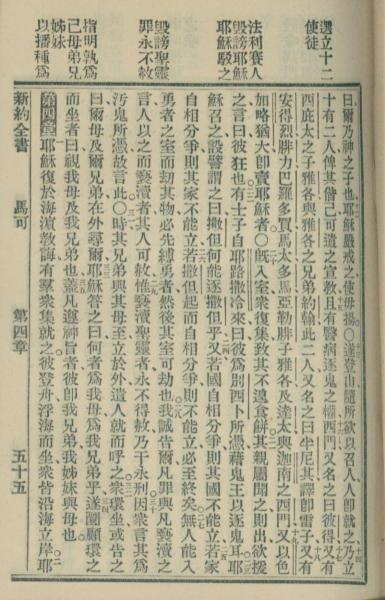 選立十二
使徒
法利賽人
毀謗耶穌
耶穌駁之
毀謗聖靈
罪永不赦
指明孰爲
己母弟兄
姊妹
以播種爲
曰爾乃神之子也耶穌嚴戒之使毋揚○遂登山隨所欲以召人人卽就之乃立
十有二人俾其偕己可遣之宣敎且有醫病逐鬼之權西門又名之曰彼得又有
西庇太之子雅各與雅各之兄弟約翰此二人又名之曰半尼其譯卽雷子又有
安得烈腓力巴羅多買馬太多馬亞勒腓子雅各及達太與迦南之西門又以色
加略猶大卽賣耶穌者○旣入室衆復集致其不遑食餅其親屬聞之則出欲援
之言曰彼狂也有士子自耶路撒冷來曰彼爲別西卜所憑藉鬼王以逐鬼耳耶
穌召之設譬謂之曰撒但何能逐撒但乎又若國自相分爭則其國不能立若家
自相分爭則其家不能立若撒但起而自相分爭則不能立必至終矣無人能入
勇者之室而刼其物必先縛勇者然後其室可刼也我誠告爾凡罪與凡褻瀆之
言人以之而褻瀆者其人可赦惟褻瀆聖靈者永不得赦乃干永刑因衆言其爲
污鬼所憑故言此○時其兄弟與其母至立於外遣人就而呼之衆環坐或告之
曰爾母及爾兄弟在外尋爾耶穌答之曰何者爲我母爲我兄弟乎遂圜顧環之
而坐者曰視我母及我兄弟也蓋凡遵神旨者彼卽我兄弟我姊妹與母也
第四章 耶穌復於海濱敎誨有羣衆集就之彼登舟浮海而坐衆皆沿海立岸耶
新約全書 馬可 第四章 五十五